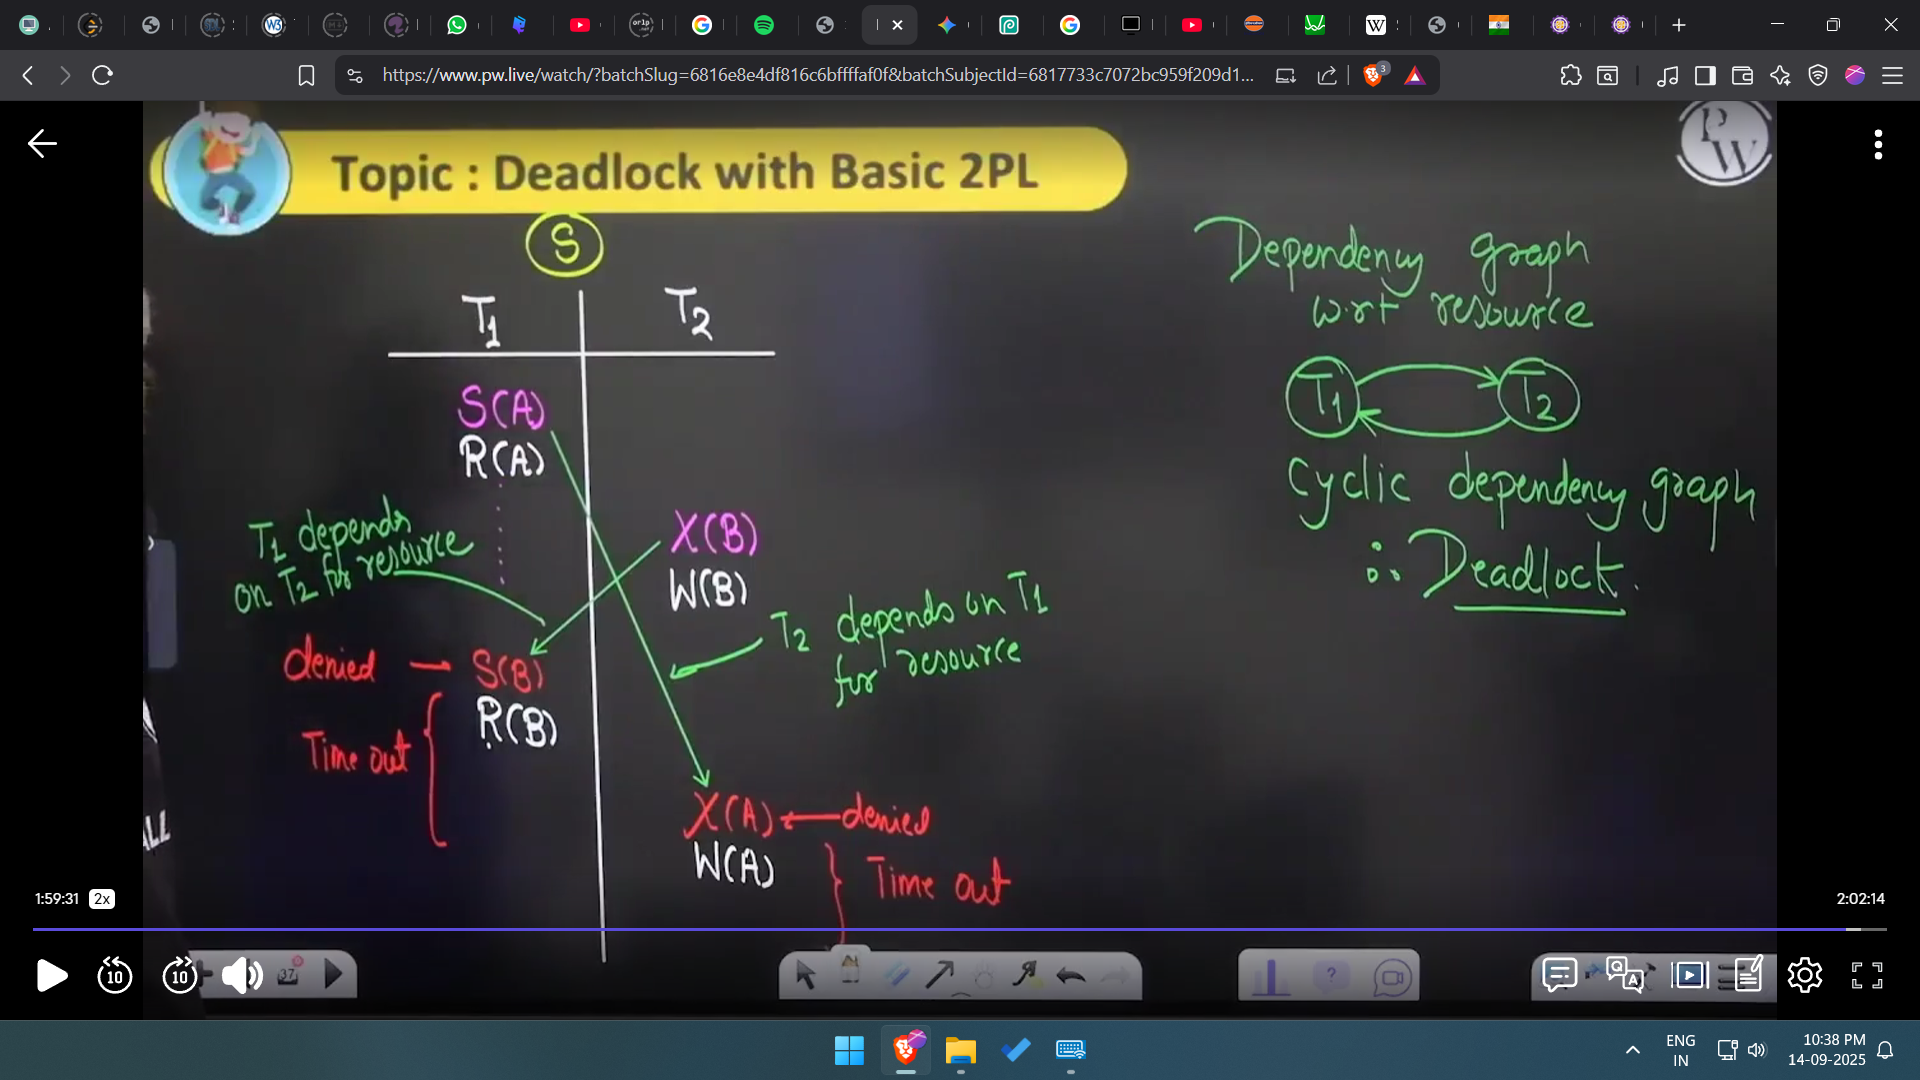 https://www.pw.live/watch/?batchSlug=6816e8e4df816c6bffffaf0f&batchSubjectId=6817733c7072bc959f209d1...
3
PW
Topic : Deadlock with Basic 2PL
S
T1 T2
S(A)
R(A)
X(B)
W(B)
T1 depends
on T2 for resource
denied → S(B)
R(B)
Time out
T2 depends on T1
for resource
X(A) ← denied
W(A)
Time out
Dependency graph
w.r.t resource
T1 T2
Cyclic dependency graph
∴ Deadlock.
ALL
1:59:31 2x
2:02:14
10 10
37
ENG
IN
10:38 PM
14-09-2025